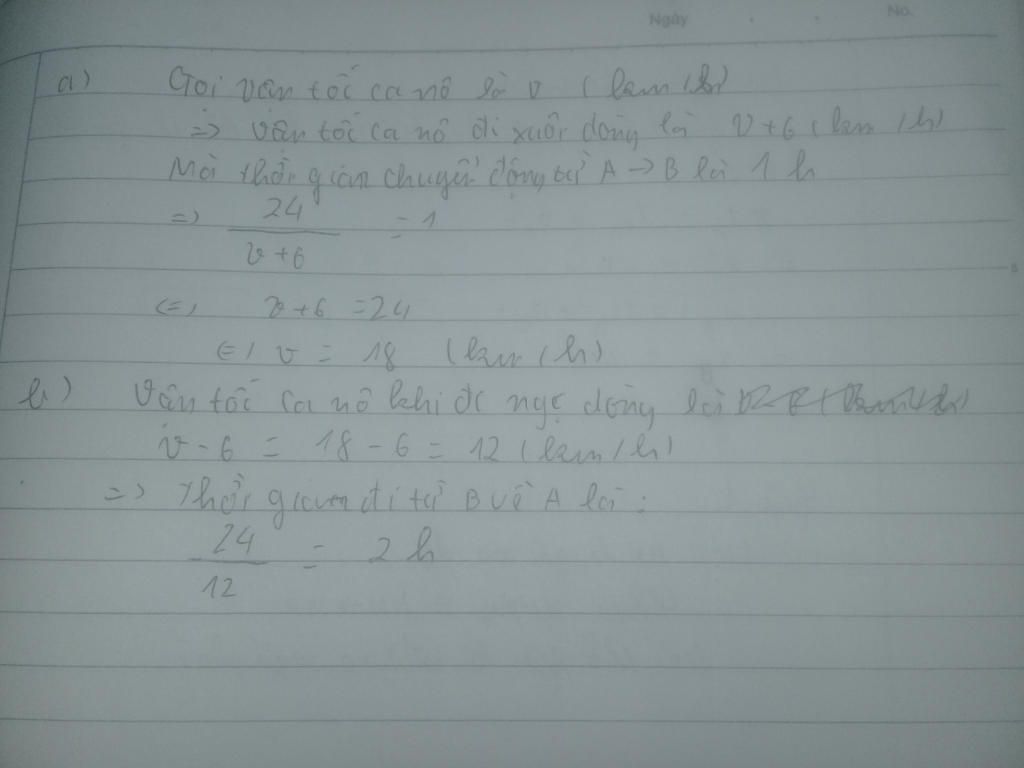 Ngày . . No.
a) Gọi vận tốc ca nô là v (km/h)
=> vận tốc ca nô đi xuôi dòng là v+6 (km/h)
Mà thời gian chuyển động từ A → B là 1 h
=> 24 / v+6 = 1
<=> v+6 = 24
<=> v = 18 (km/h)
b) Vận tốc ca nô khi đi ngc dòng là
v - 6 = 18 - 6 = 12 (km/h)
=> Thời gian đi từ B về A là:
24 / 12 = 2 h